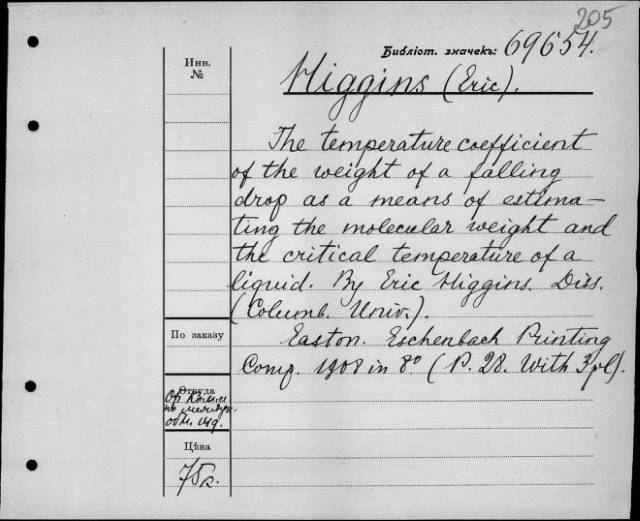 205
Библіот. значекъ: 69654.
Инв.
№
Higgins (Eric).
The temperature coefficient
of the weight of a falling
drop as a means of estima-
ting the molecular weight and
the critical temperature of a
liquid. By Eric Higgins. Diss.
(Columb. Univ.).
По заказу
Easton. Eschenbach Printing
Comp. 1908 in 8° (P. 28. With 3 pl).
Откуда
обм. изд.
Цѣна
75 к.